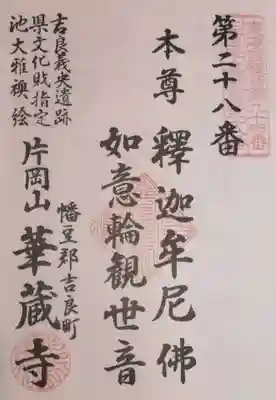 第二十八番
本尊 釋迦牟尼佛
如意輪観世音
幡豆郡吉良町
片岡山 華蔵寺
吉良義央遺跡
県文化財指定
池大雅襖絵